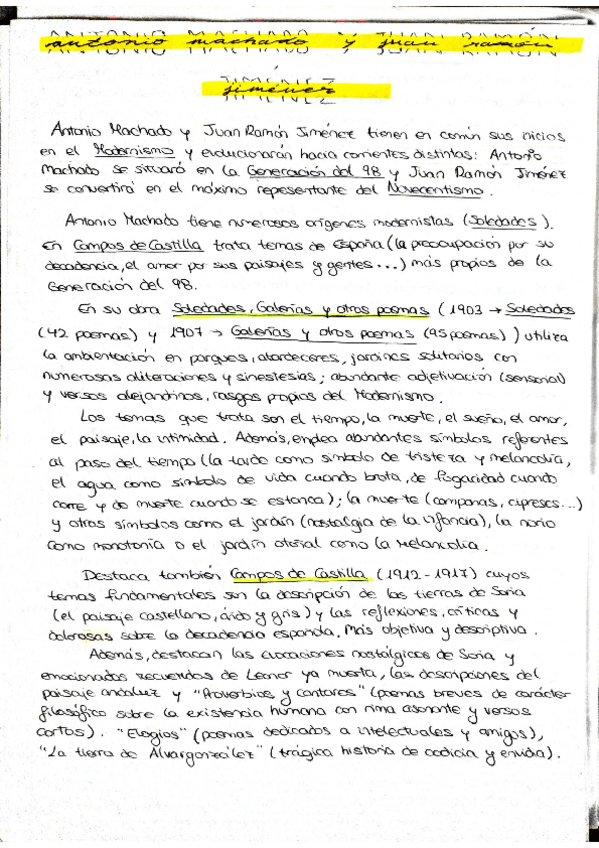 antonio machado y juan ramón
jiménez
Antonio Machado y Juan Ramón Jiménez tienen en común sus inicios
en el Modernismo y evolucionarán hacia corrientes distintas: Antonio
Machado se situará en la Generación del 98 y Juan Ramón Jiménez
se convertirá en el máximo representante del Novecentismo.
Antonio Machado tiene numerosos orígenes modernistas (Soledades).
En Campos de Castilla trata temas de España (la preocupación por su
decadencia, el amor por sus paisajes y gentes...) más propios de la
Generación del 98.
En su obra Soledades, Galerías y otros poemas (1903 → Soledades
(42 poemas) y 1907 → Galerías y otros poemas (95 poemas)) utiliza
la ambientación en parques, atardeceres, jardines solitarios con
numerosas aliteraciones y sinestesias; abundante adjetivación (sensorial)
y versos alejandrinos, rasgos propios del Modernismo.
Los temas que trata son el tiempo, la muerte, el sueño, el amor,
el paisaje, la intimidad. Además, emplea abundantes símbolos referentes
al paso del tiempo (la tarde como símbolo de tristeza y melancolía,
el agua como símbolo de vida cuando brota, de fugacidad cuando
corre y de muerte cuando se estanca); la muerte (campanas, cipreses...)
y otros símbolos como el jardín (nostalgia de la infancia), la noria
como monotonía o el jardín otoñal como la melancolía.
Destaca también Campos de Castilla (1912-1917) cuyos
temas fundamentales son la descripción de las tierras de Soria
(el paisaje castellano, árido y gris) y las reflexiones, críticas y
dolorosas sobre la decadencia española. Más objetiva y descriptiva.
Además, destacan las evocaciones nostálgicas de Soria y
emocionados recuerdos de Leonor ya muerta, las descripciones del
paisaje andaluz y "Proverbios y cantares" (poemas breves de carácter
filosófico sobre la existencia humana con rima asonante y versos
cortos). "Elogios" (poemas dedicados a intelectuales y amigos),
"La tierra de Alvargonzález" (trágica historia de codicia y envidia).